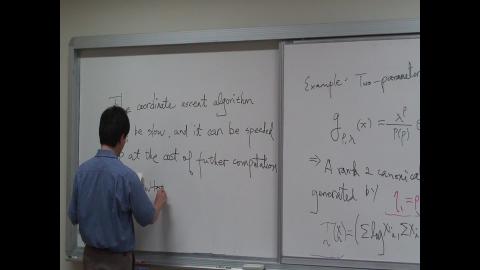 The coordinate ascent algorithm
be slow, and it can be speeded
at the cost of further computation
Example: Two-parameter
g_{p,λ}(x) = λ^p / Γ(p)
⇒ A rank 2 canonical
generated by η_1 = p
T_n(X) = (Σ log X_i, Σ X_i